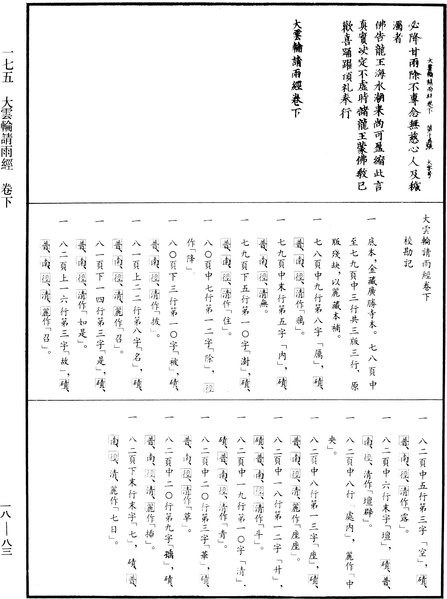 大雲輪請雨經卷下 第十五張 大字号
必降甘雨除不專念無慈心人及穢
濁者
佛告龍王海水潮來尚可盈縮此言
真實決定不虛時諸龍王蒙佛教已
歡喜踊躍頂礼奉行
大雲輪請雨經卷下
一七五 大雲輪請雨經 卷下
一八—八三
大雲輪請雨經卷下
校勘記
一 底本，金藏廣勝寺本。七八頁中
至七九頁中三行共三版三行，原
版殘缺，以麗藏本補。
一 七八頁中九行第八字「厲」，磧、
普、南、徑、清作「癘」。
一 七九頁中末行第五字「內」，磧、
普、南、徑、清無。
一 七九頁下五行第一〇字「澍」，磧、
普、南、徑、清作「住」。
一 八〇頁中七行第一二字「除」，徑
作「降」。
一 八〇頁下三行第一〇字「被」，磧、
普、南、徑、清作「披」。
一 八一頁上二二行第八字「名」，磧、
普、南、徑、清、麗作「召」。
一 八一頁下一四行第三字「是」，磧、
普、南、徑、清作「如是」。
一 八二頁上一六行第三字「故」，磧、
普、南、徑、清、麗作「召」。
一 八二頁中五行第三字「空」，磧、
普、南、徑、清作「露」。
一 八二頁中六行末字「壇」，磧、普、
南、徑、清作「壇時」。
一 八二頁中八行「處內」，麗作「中
央」。
一 八二頁中八行第一三字「座」，磧、
普、南、徑、清、麗作「座座」。
一 八二頁中一八行第一二字「升」，
磧、普、南、徑、清作「斗」。
一 八二頁中一九行第一〇字「清」，
磧、普、南、徑、清作「青」。
一 八二頁中二〇行第三字「華」，磧、
普、南、徑、清作「草」。
一 八二頁中二〇行第九字「攝」，磧、
普、南、徑、清、麗作「插」。
一 八二頁下末行末字「七」，磧、普、
南、徑、清、麗作「七日」。